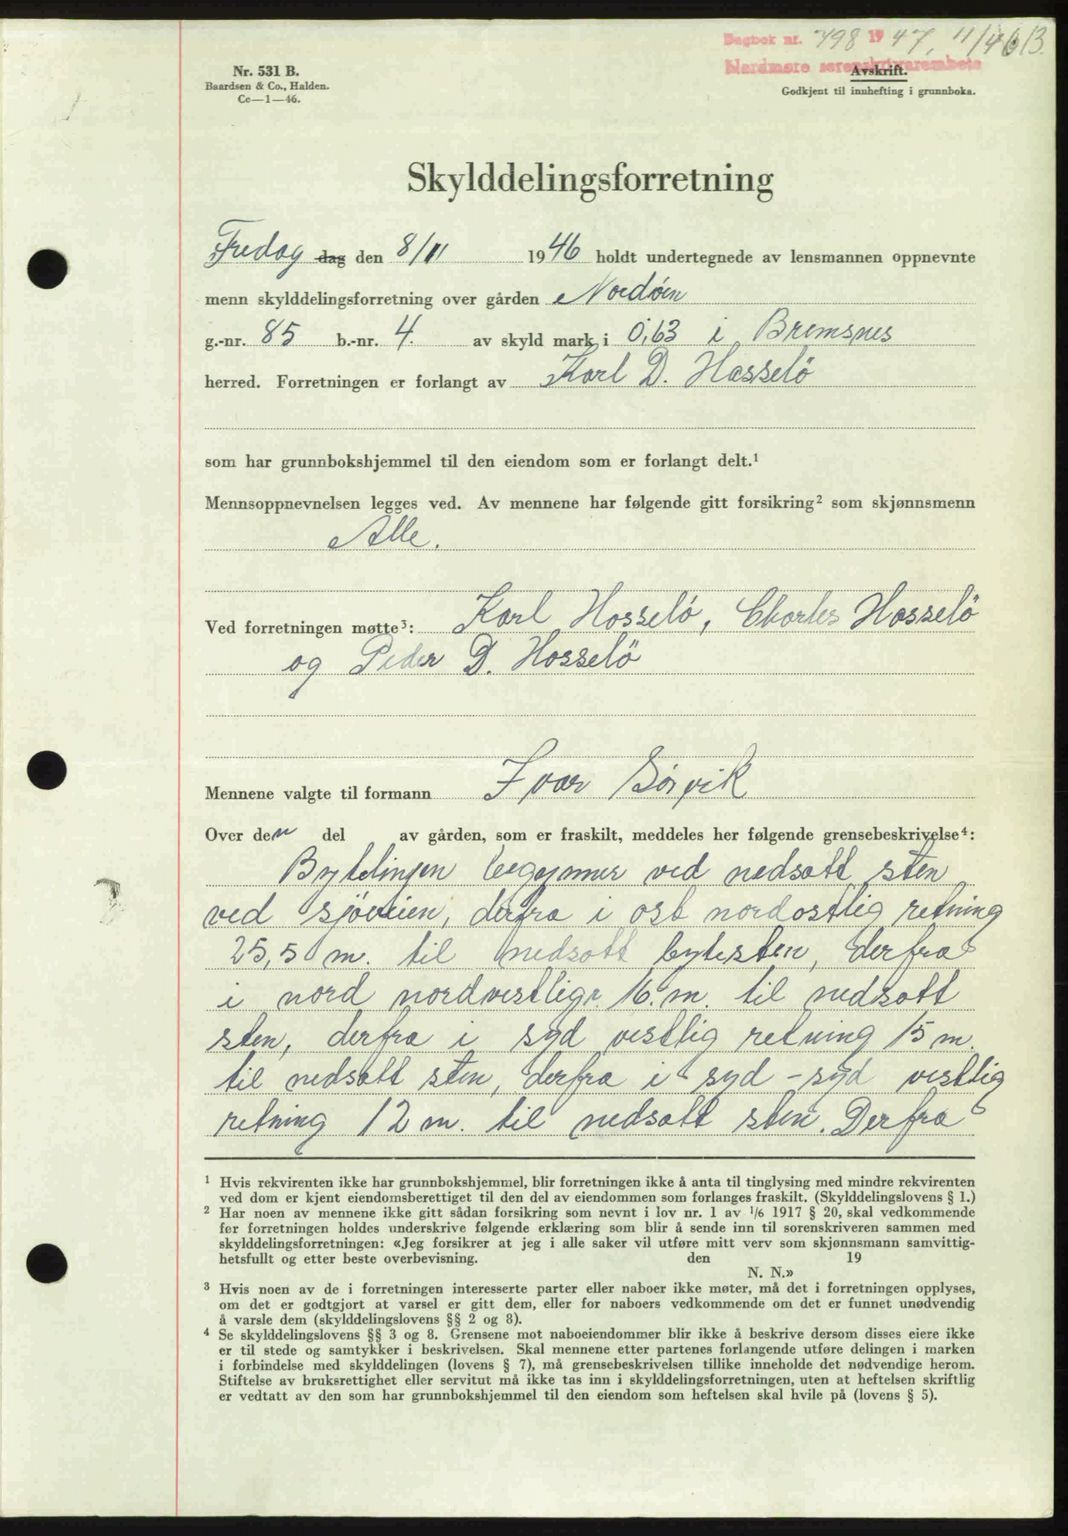 Dagbok nr. 798 19 47, 11/4 B
Nordmøre sorenskrivarembete
Nr. 531 B.
Baardsen & Co., Halden.
Cc—1—46.
Avskrift.
Godkjent til innhefting i grunnboka.
Skylddelingsforretning
Fredag dag den 8/11 1946 holdt undertegnede av lensmannen oppnevnte
menn skylddelingsforretning over gården Nordøen
g.-nr. 85 b.-nr. 4. av skyld mark i 0,63 i Bremsnes
herred. Forretningen er forlangt av Karl D. Hasselö
som har grunnbokshjemmel til den eiendom som er forlangt delt.¹
Mennsoppnevnelsen legges ved. Av mennene har følgende gitt forsikring² som skjønnsmenn
Alle.
Ved forretningen møtte³: Karl Hosselö, Charles Hasselö
og Peder D. Hosselö
Mennene valgte til formann Ivar Sörvik
Over den del av gården, som er fraskilt, meddeles her følgende grensebeskrivelse⁴:
Bytelinjen begynner ved nedsatt sten
ved sjöveien, derfra i ost nordostlig retning
25,5 m. til nedsatt bytesten, derfra
i nord nordvestlig r. 16. m. til nedsatt
sten, derfra i syd vestlig retning 15 m.
til nedsatt sten, derfra i syd - syd vestlig
retning 12 m. til nedsatt sten. Derfra
¹ Hvis rekvirenten ikke har grunnbokshjemmel, blir forretningen ikke å anta til tinglysing med mindre rekvirenten
ved dom er kjent eiendomsberettiget til den del av eiendommen som forlanges fraskilt. (Skylddelingslovens § 1.)
² Har noen av mennene ikke gitt sådan forsikring som nevnt i lov nr. 1 av 1/6 1917 § 20, skal vedkommende
før forretningen holdes underskrive følgende erklæring som blir å sende inn til sorenskriveren sammen med
skylddelingsforretningen: «Jeg forsikrer at jeg i alle saker vil utføre mitt verv som skjønnsmann samvittig-
hetsfullt og etter beste overbevisning. den 19
N. N.»
³ Hvis noen av de i forretningen interesserte parter eller naboer ikke møter, må det i forretningen opplyses,
om det er godtgjort at varsel er gitt dem, eller for naboers vedkommende om det er funnet unødvendig
å varsle dem (skylddelingslovens §§ 2 og 8).
⁴ Se skylddelingslovens §§ 3 og 8. Grensene mot naboeiendommer blir ikke å beskrive dersom disses eiere ikke
er til stede og samtykker i beskrivelsen. Skal mennene etter partenes forlangende utføre delingen i marken
i forbindelse med skylddelingen (lovens § 7), må grensebeskrivelsen tillike inneholde det nødvendige herom.
Stiftelse av bruksrettighet eller servitut må ikke tas inn i skylddelingsforretningen, uten at heftelsen skriftlig
er vedtatt av den som har grunnbokshjemmel til den eiendom som heftelsen skal hvile på (lovens § 5).